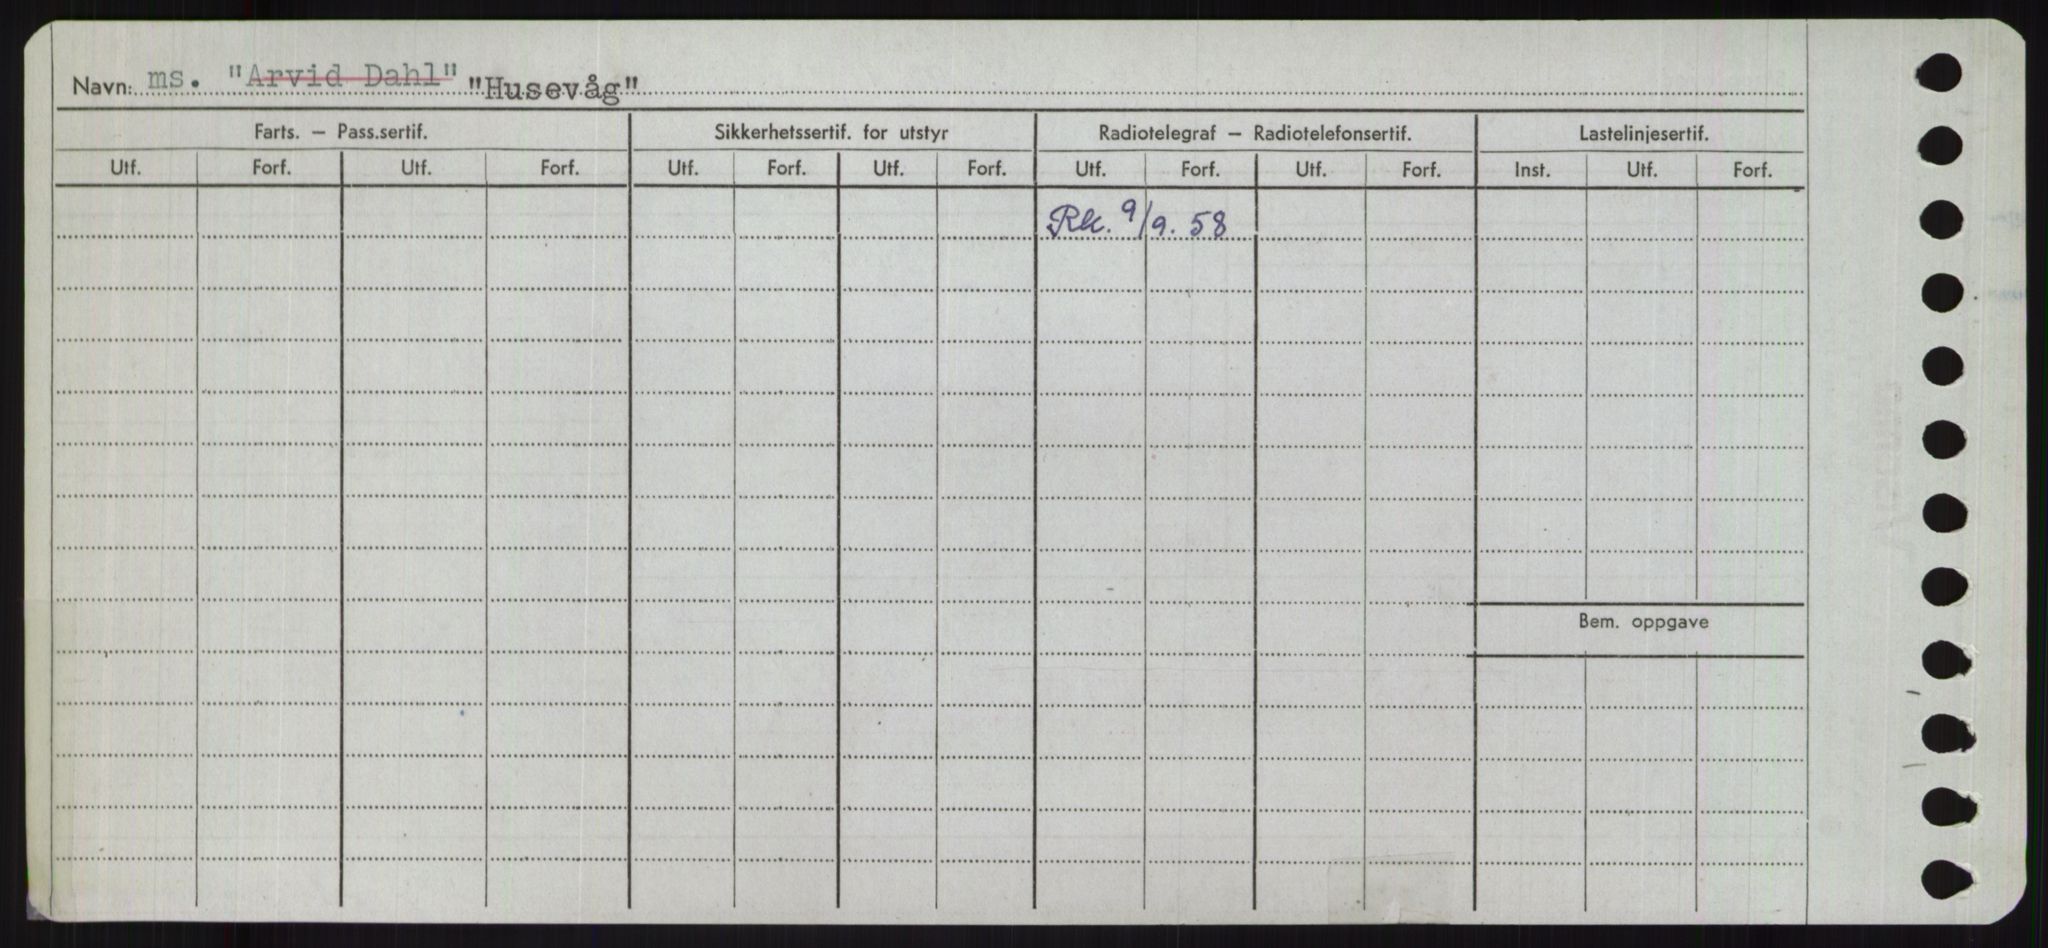 Navn: ms. "Arvid Dahl" "Husevåg"
Farts. – Pass.sertif. Sikkerhetssertif. for utstyr Radiotelegraf – Radiotelefonsertif. Lastelinjesertif.
Utf. Forf. Utf. Forf. Utf. Forf. Utf. Forf. Utf. Forf. Utf. Forf. Inst. Utf. Forf.
Rk. 9/9. 58
Bem. oppgave